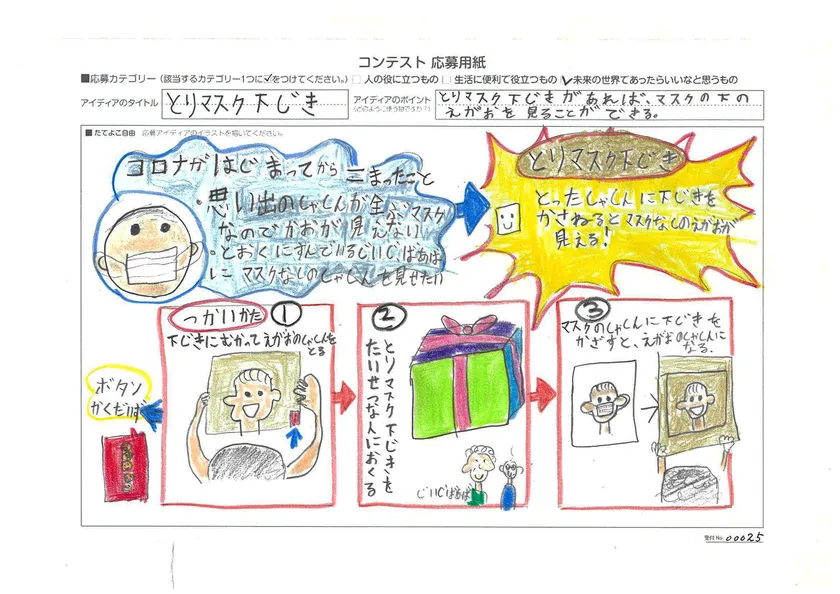 コンテスト 応募用紙
■応募カテゴリー（該当するカテゴリー1つに✓をつけてください。） □ 人の役に立つもの □ 生活に便利で役立つもの ✓未来の世界であったらいいなと思うもの
アイディアのタイトル
とりマスク下じき
アイディアのポイント
とりマスク下じきがあれば、マスクの下の
えがおを見ることができる。
■たてよこ自由 応募アイディアのイラストを描いてください。
コロナがはじまってからこまったこと
・思い出のしゃしんが全ぶマスク
なのでかおが見えない
・とおくにすんでいるじいじばあば
に マスクなしのしゃしんを見せたい
とりマスク下じき
とったしゃしんに下じきを
かさねるとマスクなしのえがおが
見える!
つかいかた ①
下じきにむかってえがおのしゃしんを
とる
ボタン
かくだいず
②
とりマスク下じきを
たいせつな人におくる
じいじばあば
③
マスクのしゃしんに下じきを
かざすと、えがおのしゃしんに
なる.
受付No. 00025